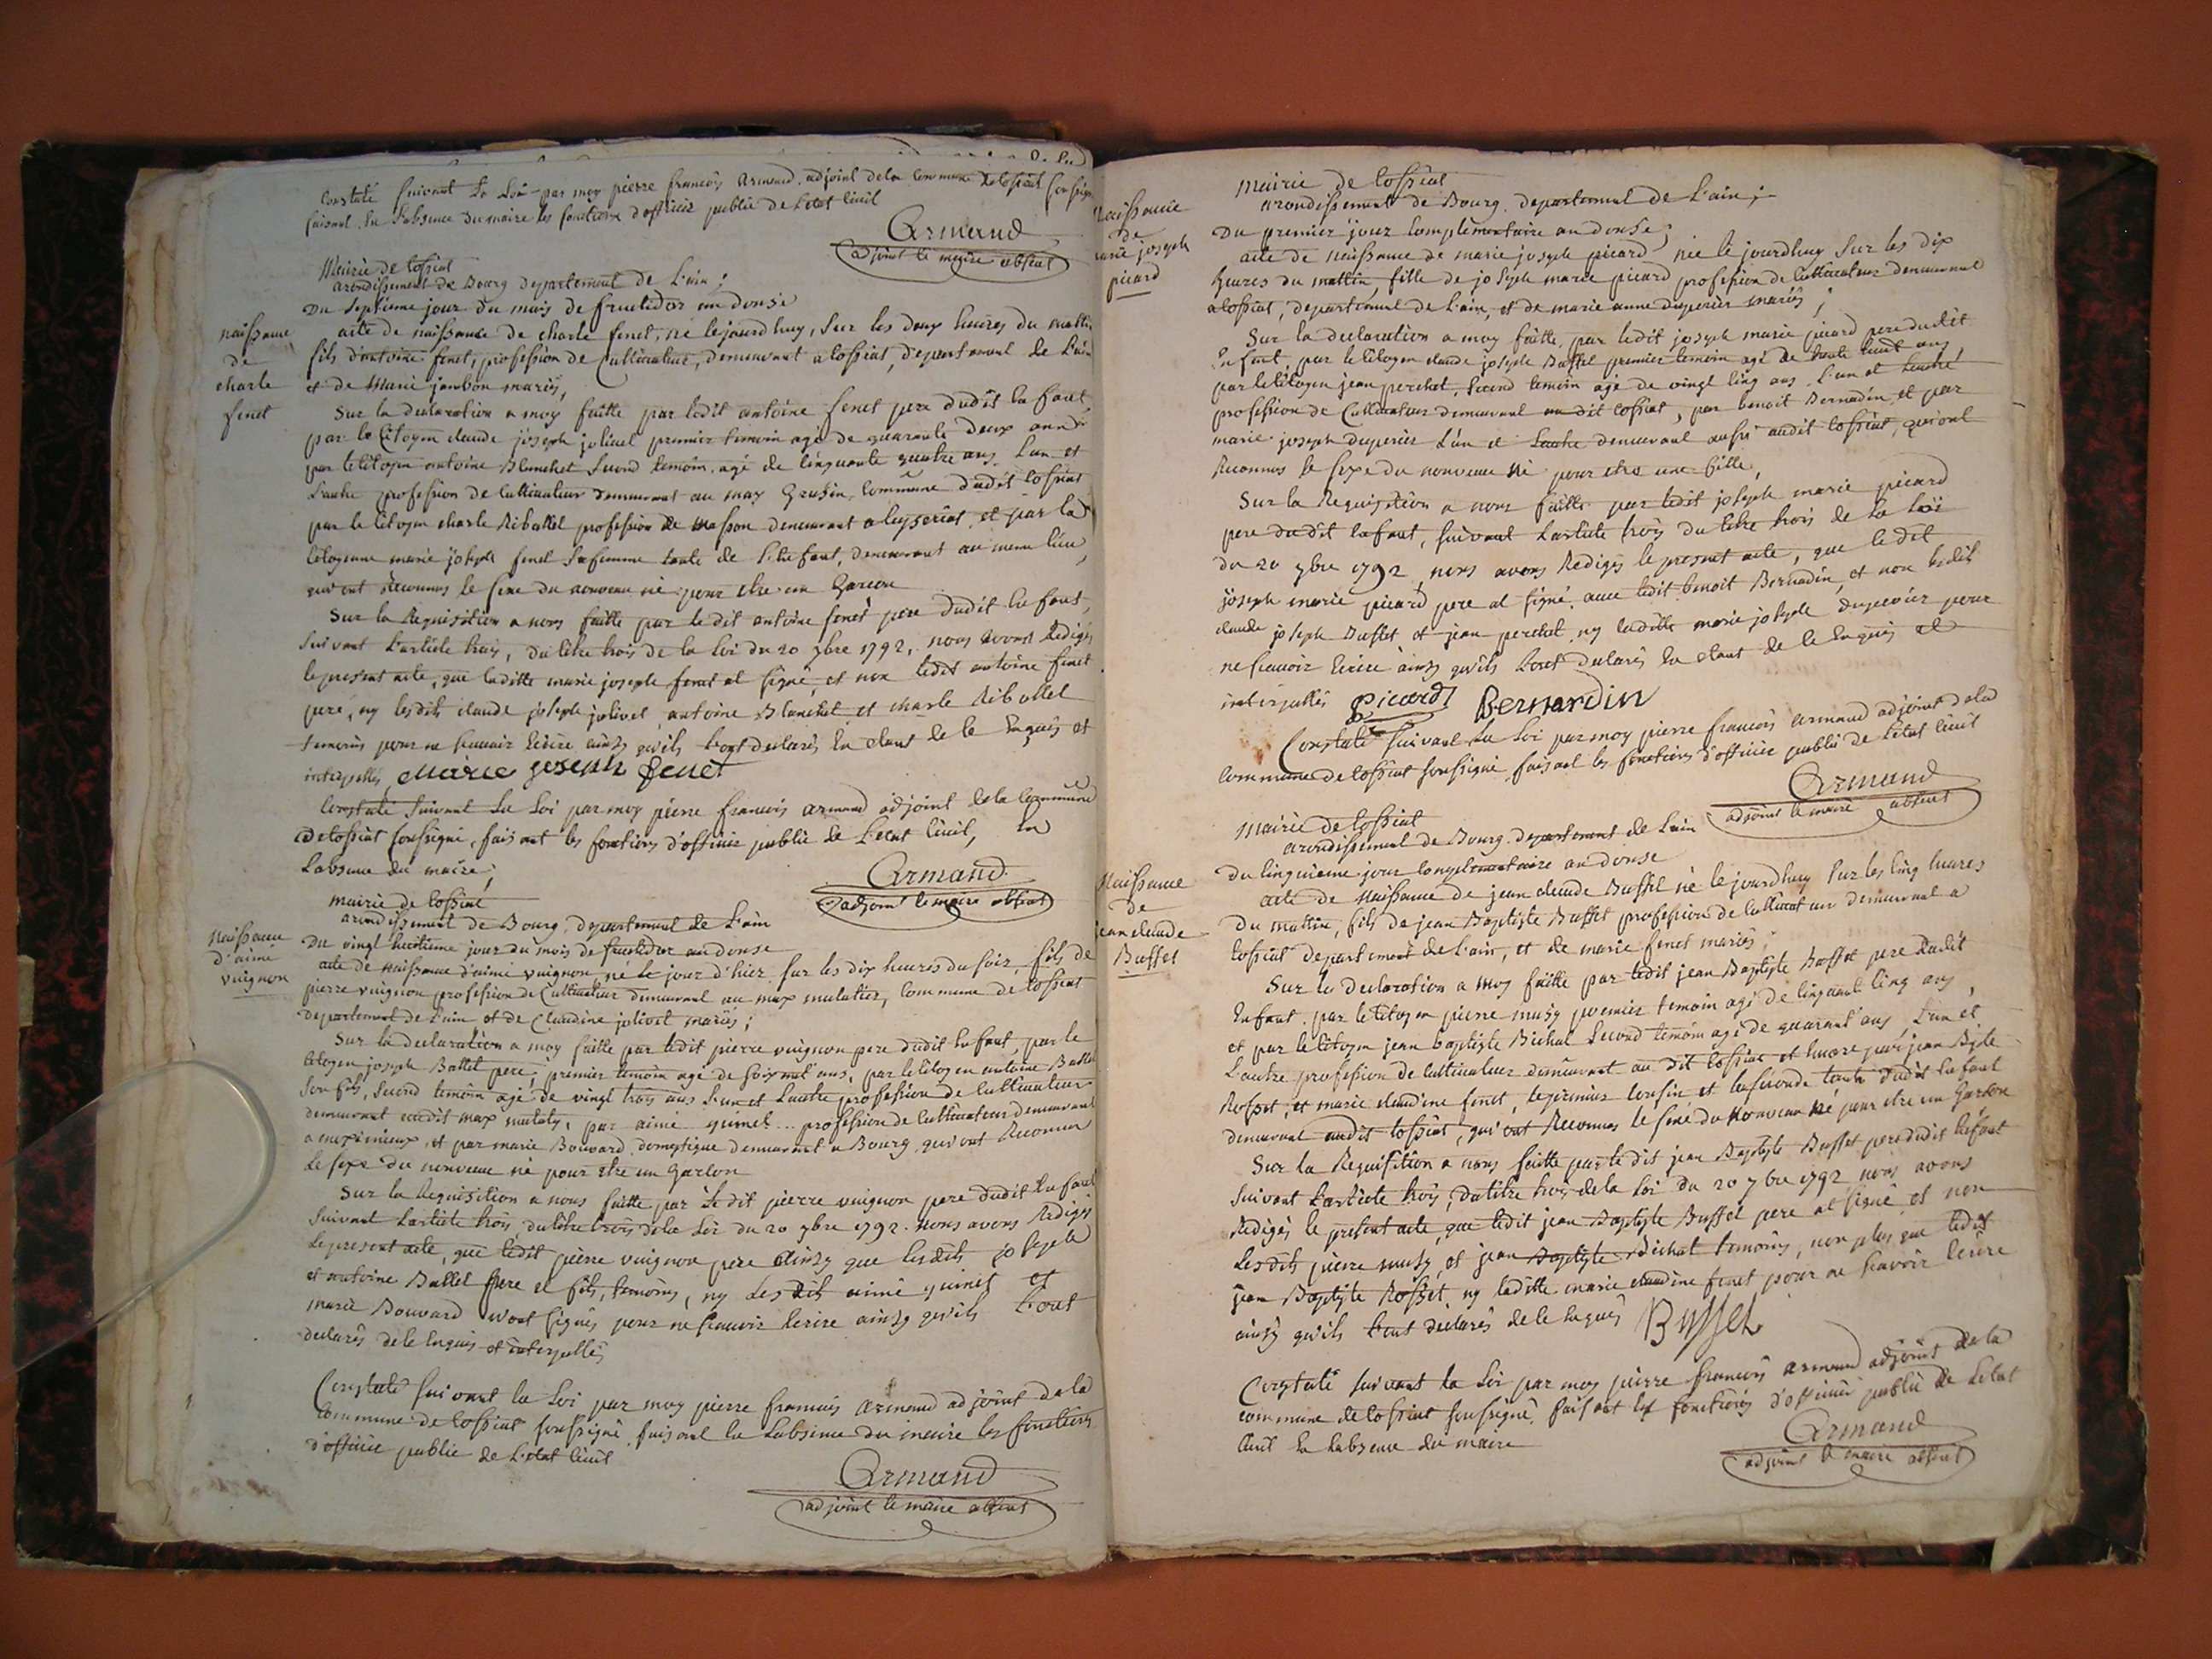 Constaté suivant la Loi par moy pierre francois Armand adjoint dela commune de lossiat soussigné
faisant En l'absence du maire les fonctions d'officié public de l'etat Civil
Armand
adjoint le maire absent
Mairie de lossiat
arondissement de Bourg departement de l'ain ;
Du septieme jour du mois de fructidor an douse
naissance
de
charle
fenet
acte de naissance de charle fenet, né le jourdhuy, sur les deux heures du mattin
fils d'antoine fenet, profession de Cultivateur, demeurant a lossiat, departement de l'ain
et de Marie jambon mariés,
Sur la declaration a moy faitte par ledit antoine fenet pere dudit En fant
par le Citoyen claude joseph jolivet premier temoin agé de quarante deux ans
par le Citoyen antoine Blanchet second temoin agé de Cinquante quatre ans L'un et
L'autre profession de Cultivateur demeurant au max Grusin, Commune dudit lossiat
par le Citoyen charle Ribollet profession de masson demeurant a et par la
Citoyenne marie joseph fenet sa femme tante de l'En fant, demeurant au meme lieu,
qui ont Reconnus le sexe du nouveau né pour etre un Garcon
Sur la Requisition a nous faitte par le dit antoine fenet pere dudit En fant,
suivant L'article trois, du titre trois de la Loi du 20 7bre 1792, nous avons Redigés
le present acte, que laditte marie joseph fenet at signé, et non ledit antoine fenet
pere, ny lesdits claude joseph jolivet antoine Blanchet et charle Ribollet
temoins pour ne scavoir Ecrire ainsy qu'ils L'ont declarés En etant de le Enquis et
interpellés Marie joseph fenet
Constaté suivant La Loi par moy pierre francois armand adjoint dela Commune
de lossiat soussigné, faisant les fonctions d'officié public de L'etat Civil, En
Labsence du maire,
Armand
adjoint le maire absent
mairie de lossiat
arondissement de Bourg departement de L'ain
Naissance
d'aimé
vuignon
Du vingt huitieme jour du mois de fructidor an douse
acte de naissance d'aimé vuignon né le jour d'hier sur les dix heures du soir, fils de
pierre vuignon profession de Cultivateur demeurant au max mulatier, Commune de lossiat
departement de L'ain et de Claudine jolivet mariés ;
Sur la declaration a moy faitte par ledit pierre vuignon pere dudit En fant, par le
Citoyen joseph Battet pere premier temoin agé de soixant ans, par le Citoyen antoine Battet
son fils, second temoin agé de vingt trois ans L'un et L'autre profession de Cultivateur
demeurant audit max mulaty, par aimé guinet profession de Cultivateur demeurant
a meximieux, et par marie Bouvard domestique demeurant a Bourg qui ont Reconnu
Le sexe du nouveau né pour etre un Garcon
Sur la Requisition a nous faitte par Le dit pierre vuignon pere dudit En fant
suivant L'article trois du titre trois dela Loi du 20 7bre 1792. nous avons Redigés
Le present acte, que ledit pierre vuignon pere Ainsy que lesdits joseph
et antoine Battet pere et fils, temoins, ny Les dits aimé guinet et
marie Bouvard n'ont signés pour ne scavoir Ecrire ainsy qu'ils L'ont
declarés de le Enquis et interpellés
Constaté suivant la Loi par moy pierre francois Armand adjoint dela
Commune de lossiat soussigné faisant En Labsence du maire les fonctions
d'officié public de L'etat Civil
Armand
adjoint le maire absent
Mairie de lossiat
arondissement de Bourg departement de L'ain ;
Naissance
de
marie joseph
picard
Du premier jour Complementaire an douse ;
acte de Naissance de marie joseph picard née le jourdhuy sur les dix
heures du mattin, fille de joseph marie picard profession de Cultivateur demeurant
a lossiat, departement de L'ain, et de marie anne duperier mariés ;
Sur la declaration a moy faitte, par ledit joseph marie picard pere dudit
En fant, par le Citoyen claude joseph Buffet premier temoin agé de trente huit ans,
par le Citoyen jean perchet, second temoin agé de vingt cinq ans L'un et Lautre
profession de Cultivateur demeurant au dit lossiat, par benoit Bernadin et par
marie joseph duperier L'un et Lautre demeurant aussi audit lossiat, qui ont
Reconnus le sexe du nouveau né pour etre une fille,
Sur la Requisition a nous faitte par ledit joseph marie picard
pere dudit Enfant, suivant L'article trois du titre trois de la Loi
du 20 7bre 1792, nous avons Redigés le present acte, que le dit
joseph marie picard pere at signé avec ledit benoit Bernadin, et non lesdits
claude joseph Buffet et jean perchet ny laditte marie joseph duperier pour
ne scavoir Ecrire ainsy qu'ils L'ont declarés En etant de le Enquis et
interpellés Picard Bernardin
Constaté suivant La Loi par moy pierre francois Armand adjoint dela
Commune de lossiat soussigné, faisant les fonctions d'officié public de L'etat Civil
Armand
adjoint le maire absent
Mairie de lossiat
arondissement de Bourg departement de L'ain
Naissance
de
jean claude
Buffet
Du Cinquieme jour Complementaire an douse
acte de Naissance de jean claude Buffet né le jourdhuy sur les Cinq heures
du mattin, fils de jean Baptiste Buffet profession de Cultivateur demeurant a
lossiat departement de L'ain, et de marie fenet mariés ;
Sur la declaration a moy faitte par ledit jean Baptiste Buffet pere dudit
Enfant par le Citoyen pierre musy premier temoin agé de Cinquant Cinq ans,
et par le Citoyen jean baptiste Bichat second temoin agé de quarant ans, L'un et
L'autre profession de Cultivateur demeurant au dit lossiat et Encore par jean Bpte
Rosset, et marie claudine fenet, le premier Cousin et la seconde tante dudit En fant
demeurant audit lossiat, qui ont Reconnus le sexe du Nouveau né pour etre un Garcon
Sur la Requisition a nous faitte par le dit jean Baptiste Buffet pere dudit Enfant
suivant L'article trois, du titre trois de la Loi du 20 7bre 1792 nous avons
Redigés le present acte, que ledit jean Baptiste Buffet pere at signé, et non
Lesdits pierre musy, et jean Baptiste Bichat temoins, non plus que ledit
jean Baptiste Rosset, ny laditte marie claudine fenet pour ne scavoir Ecrire
ainsy qu'ils L'ont declarés de le Enquis Buffet
Constaté suivant la Loi par moy pierre francois armand adjoint dela
commune de lossiat soussigné, faisant les fonctions d'officié public de L'etat
Civil En Labsence du maire
Armand
adjoint le maire absent